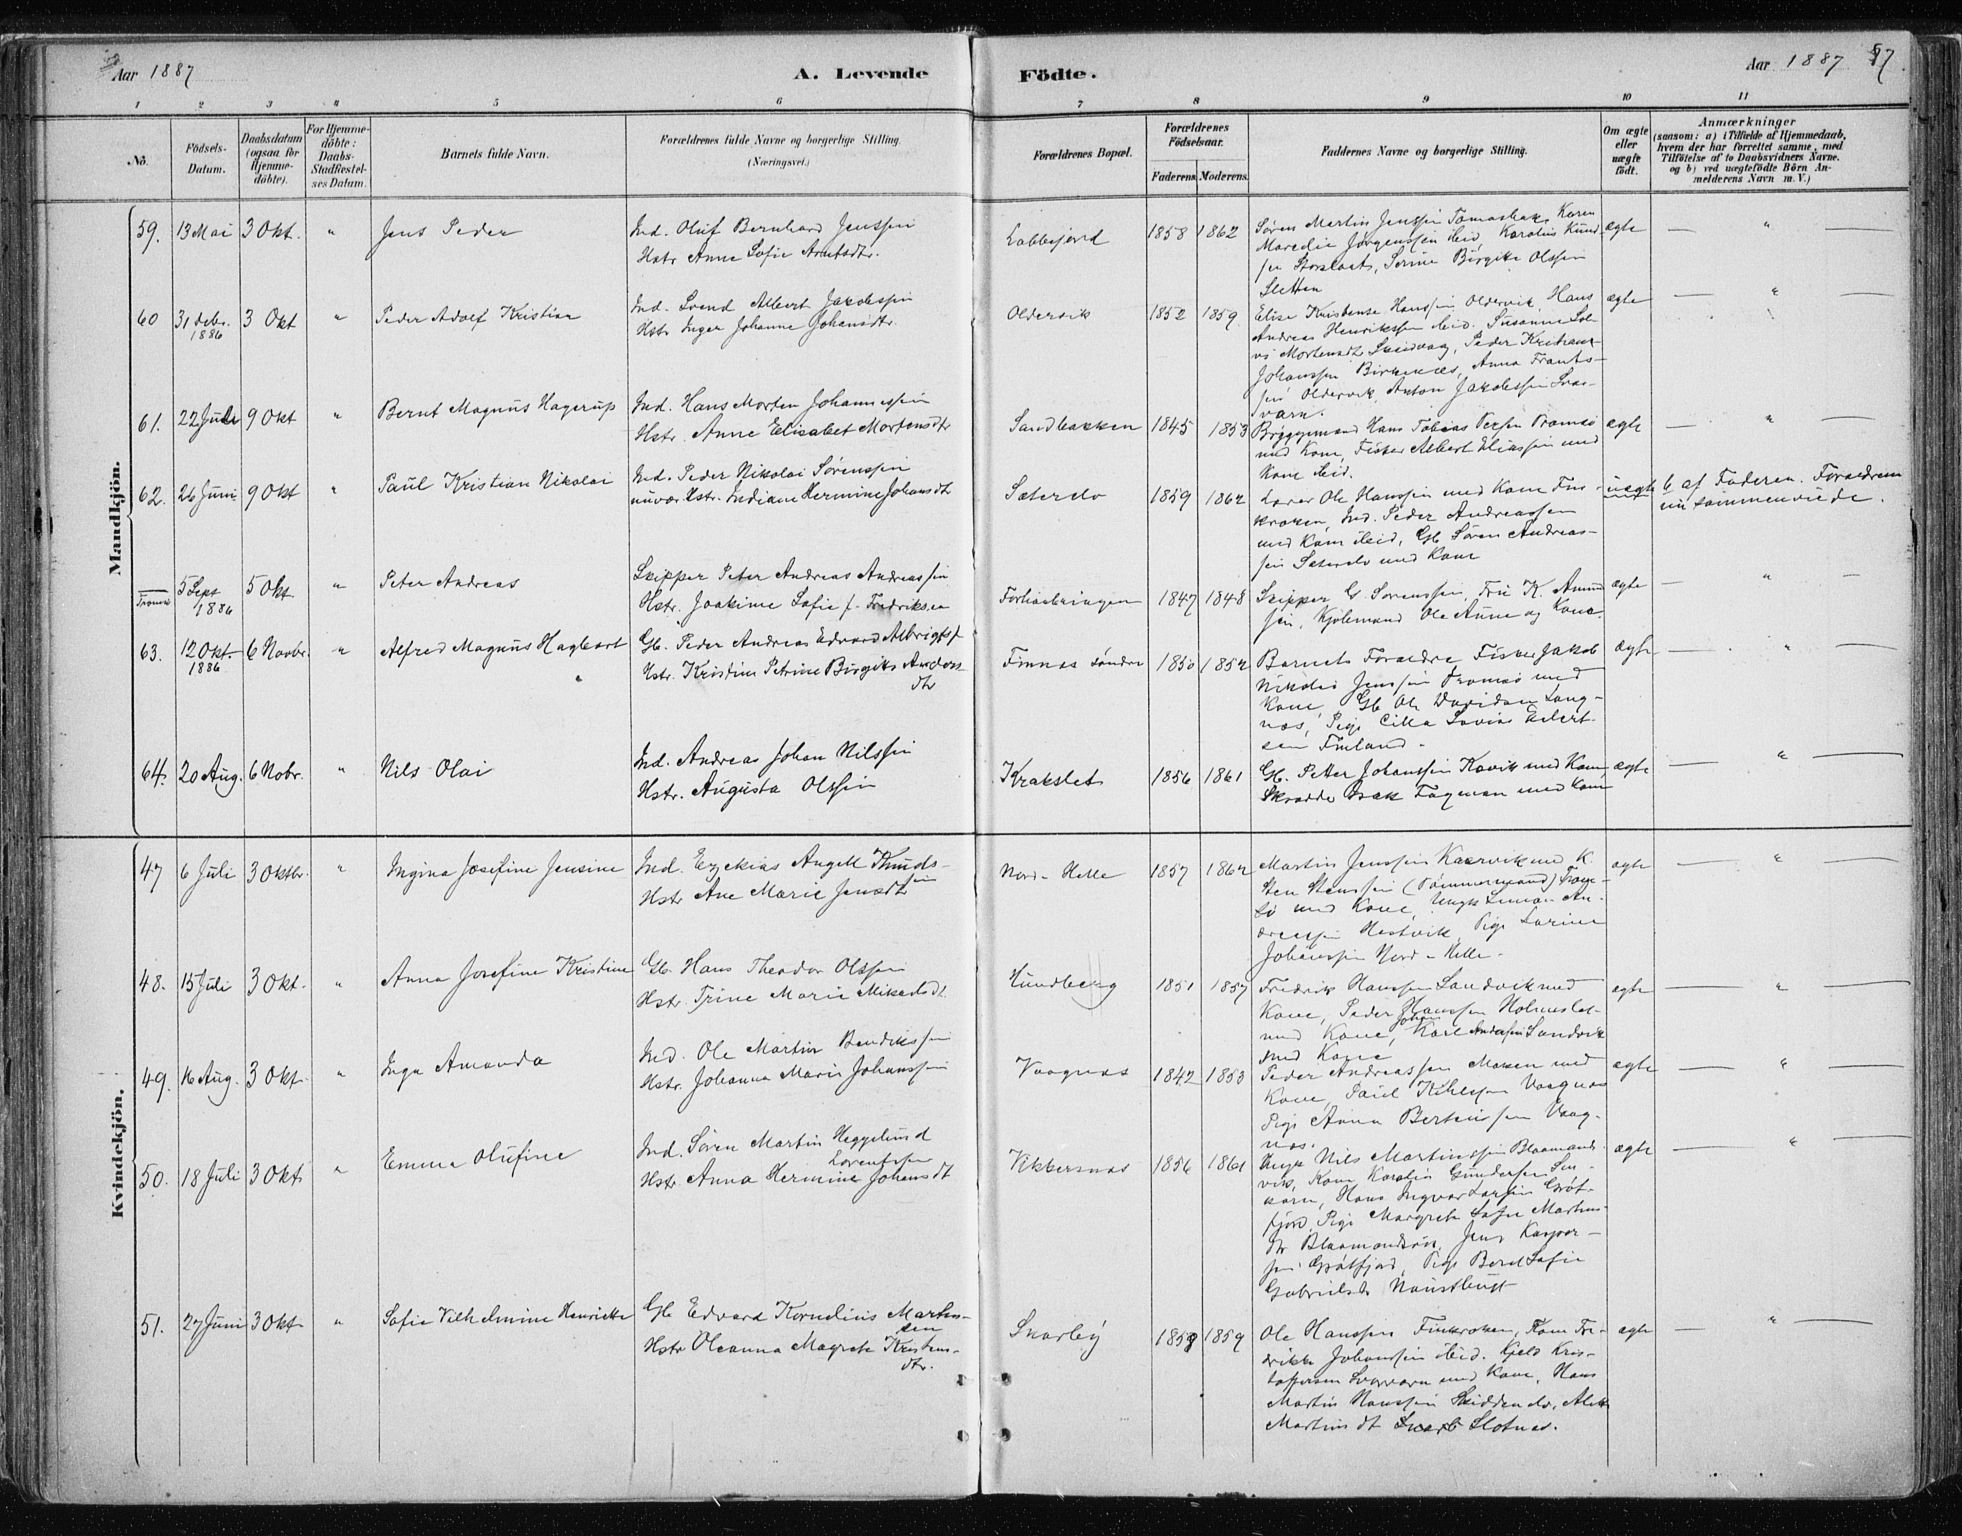 Aar 1887
A. Levende
Födte.
Aar 1887
57.
1 2 3 4 5 6 7 8 9 10 11
No.
Födsels-
Datum.
Daabsdatum
(ogsaa för
Hjemme-
döbte).
For Hjemme-
döbte:
Daabs-
Stadfæstel-
ses Datum.
Barnets fulde Navn.
Forældrenes fulde Navne og borgerlige Stilling
(Næringsvei.)
Forældrenes Bopæl.
Forældrenes
Födselsaar.
Faderens. Moderens.
Faddernes Navne og borgerlige Stilling.
Om ægte
eller
uægte
födt.
Anmærkninger
(saasom: a) i Tilfælde af Hjemmedaab,
hvem der har forrettet samme, med
Tilföielse af to Daabsvidners Navne.
og b) ved uægtefödte Börn An-
melderens Navn m. V.)
Mandkjön.
59. 13 Mai 3 Okt. " Jens Peder
Ind. Oluf Bernhard Jenssen
Hstr. Anne Sofie
Labbefjord 1858 1862
Søren Martin Jenssen Tomasbak, Karen
Maredie Jørgenssen ibid, Karolius Knud-
sen Storslaet, Serine Birgite Olssen
Sletten
ægte — " —
60 31 debr. 1886 3 Okt " Peder Adolf Kristian
Ind. Svend Albert Jakobssen
Hstr. Inger Johanne Johansdtr.
Oldervik 1852 1859.
Elise Kristense Hanssen, Oldervik, Hans
Andreas Henrikssen ibid. Susanne Sol-
vi Mortensdt Skeidvaag, Peder Kristian
Johanssen Birkenæs, Anna Frants-
sen Oldervik, Anton Jakobssen Svar-
varn.
ægte — " —
61. 22 Juli 9 Okt " Bernt Magnus Hagerup
Ind. Hans Morten Johannessen
Hstr. Anne Elisabet Mortensdtr
Sandbakken 1845 1853
Bryggemand Hans Tobias Persen Tromsö
med Kone, Fisker Albert Eliassen med
Kone ibid.
ægte — " —
62. 26 Juni 9 Okt " Paul Kristian Nikolai
Ind. Peder Nikolai Sørenssen
nuvær. Hstr. Indiane Hermine Johansdtr
1859 1862
Lærer Ole Hanssen med Kone Fin-
kroken, Ind. Peder Andreassen
med Kone ibid, Gb. Søren Andreas-
sen med Kone
uægte b af Faderen. Forældrene
nu sammenviede.
Tromsö 5 Sept 1886 5 Okt. " Peter Andreas
Skipper Peter Andreas Andreassen
Hstr. Joakime Sofie f. Fredriksen
1847 1848
Skipper G. Sörenssen, Fru K. Amund
sen, Kjøbmand Ole Aune og Kone.
ægte — " —
63. 12 Okt. 1886 6 Novbr. " Alfred Magnus Hagbart
Gb. Peder Andreas Edvard Albrigts.
Hstr. Kristine Petrine Birgitte Anders-
dtr
Finnæs söndre 1850 1852
Barnets Forældre, Fisker Jakob
Nikolai Jenssen Tromsö med
Kone, Gb. Ole Davidsen Lang-
næs, Pige Cilla Lovise Eilert-
sen Finland.
ægte — " —
64. 20 Aug. 6 Nobr. " Nils Olai
Ind. Andreas Johan Nilssen
Hstr. Augusta Olssen
Krakslet 1856 1861
Gb. Petter Johanssen Kavik med Kone,
Skrædder Isak Fagman med Kone
ægte — " —
Kvindekjön.
47 6 Juli 3 Oktbr. " Ingina Josefine Jensine
Ind. Ezekias Angell Knuds-
sen
Hstr Ane Marie Jensdtr
Nord-Helle 1857 1862
Martin Jenssen Kaarvik med K.
Sten Stenssen (Tömmermand) Trom-
sö med Kone, Ungk Simon An-
dreassen Hestvik, Pige Larine
Johanssen Nord-Helle.
ægte — " —
48. 15 Juli 3 Okt. " Anna Josefine Kristine
Gb. Hans Theodor Olssen
Hstr. Trine Marie Mikalsdt.
Hundberg 1851 1857
Fredrik Hanssen Sandvik med
Kone, Peder Hanssen Holmeslet
med Kone, Karl Johan Anderssen Sandvik
med Kone
ægte — " —
49. 16 Aug. 3 Okt. " Inga Amanda
Ind. Ole Martin Bendikssen
Hstr. Johanna Marie Johanssen
Vaagnæs 1842 1853
Peder Andreassen Moken med
Kone, Paul Vaagnæs
Pige Anna Berteussen Vaag-
næs.
ægte — " —
50. 18 Juli 3 Okt " Emma Olufine
Ind. Søren Martin Heggelund
Lorentsen
Hstr. Anna Hermine Johansdt
Vikkersnæs 1856 1861
Ungk Nils Martinssen Blaamands-
vik, Kone Karolis Gundersen Sin-
karn, Hans Ingvar Larsen Gröt-
fjord, Pige Margrete Sofie Martins-
dtr Blaamandsvik, Jens Kaspar-
sen Grötfjord, Pige Berel Sofie
Gabrielsdt Naustbugt
ægte — " —
51. 27 Juni 3 Okt " Sofie Vilhelmine Henriette
Gb. Edvard Kornelius Martins-
sen
Hstr Oleanna Magrete Kristens-
dtr.
Skarbø 1858 1859
Ole Hanssen Finkroken, Kone Fre-
drikke Johanssen ibid. Kjeld Kris-
toffersen Svarvarn med Kone, Hans
Martin Hanssen
Martinsdt Slotnæs.
ægte — " —